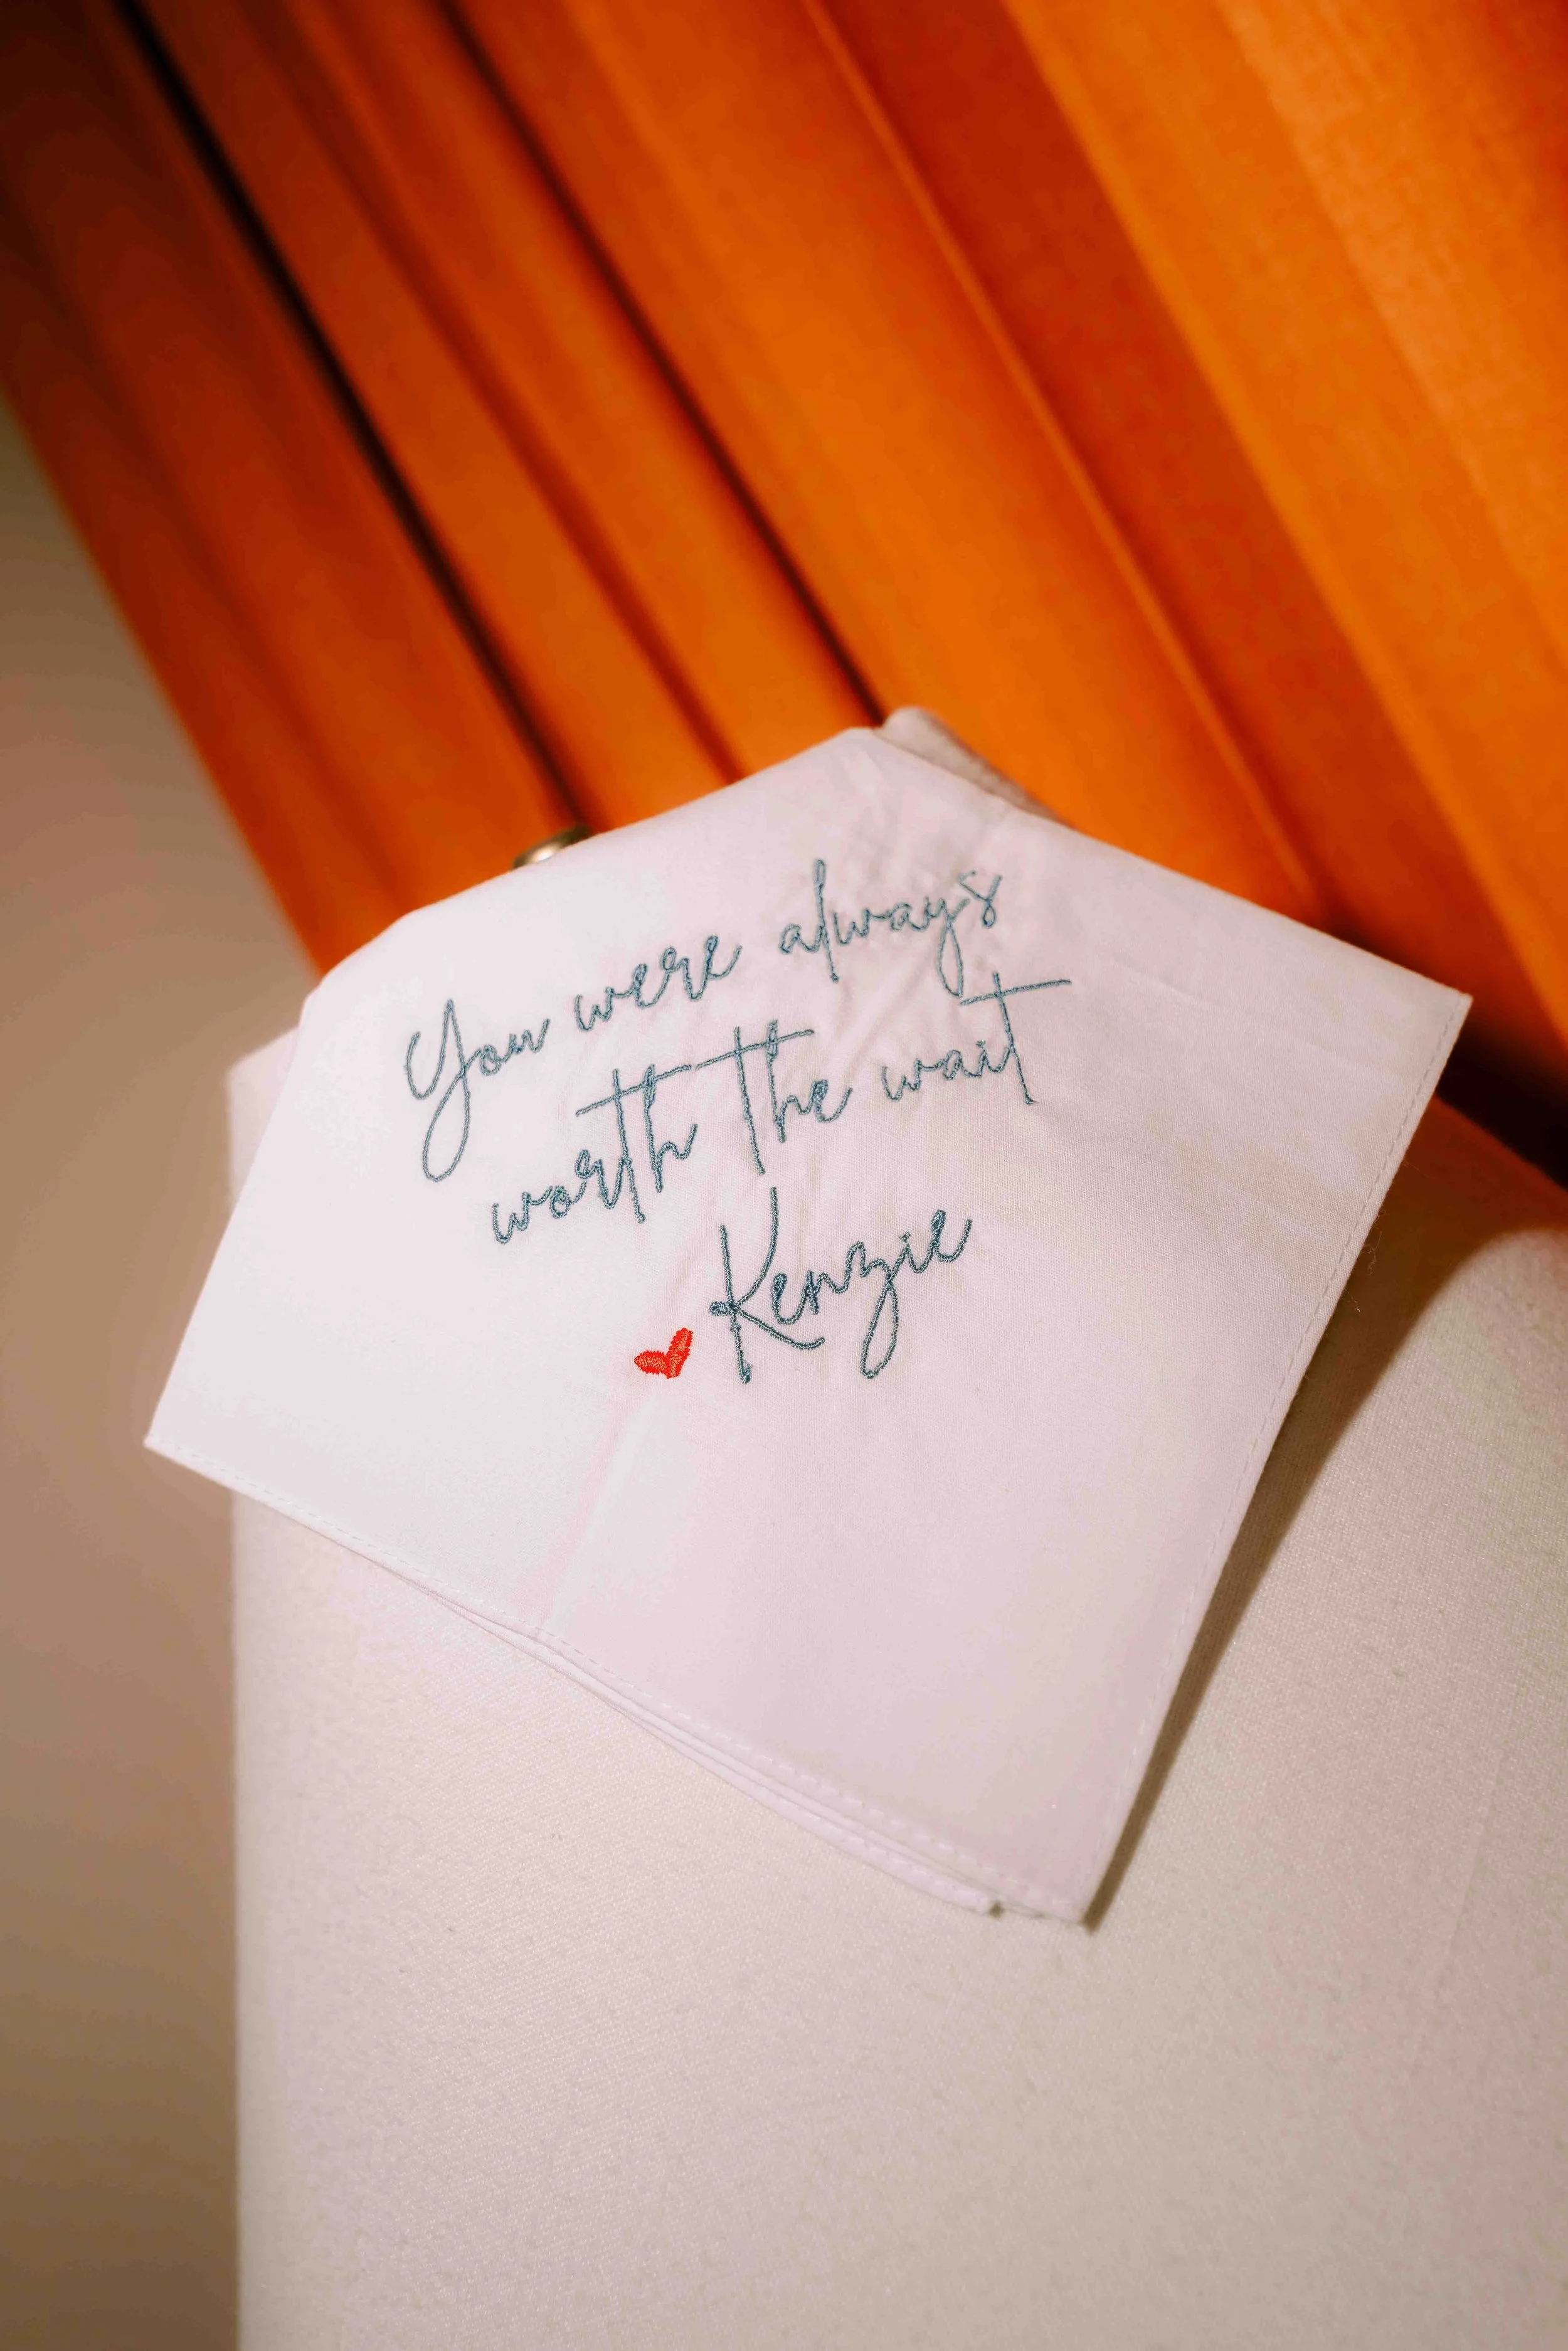 You were always
worth the wait
Kenzie